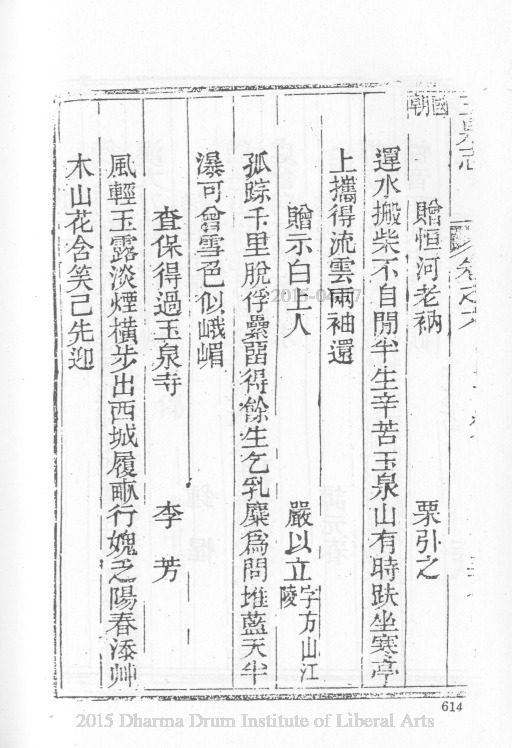 玉泉志 卷之六
國朝
贈恒河老衲 栗引之
運水搬柴不自閒半生辛苦玉泉山有時趺坐寒亭
上攜得流雲兩袖還
贈示白上人 嚴以立字方山江陵
孤踪千里脫俘纍畱得餘生乞乳糜爲問堆藍天半
瀑可曾雪色似峨嵋
查保得過玉泉寺 李芳
風輕玉露淡煙橫步出西城履畝行媿乏陽春添艸
木山花含笑已先迎
614
2015 Dharma Drum Institute of Liberal Arts